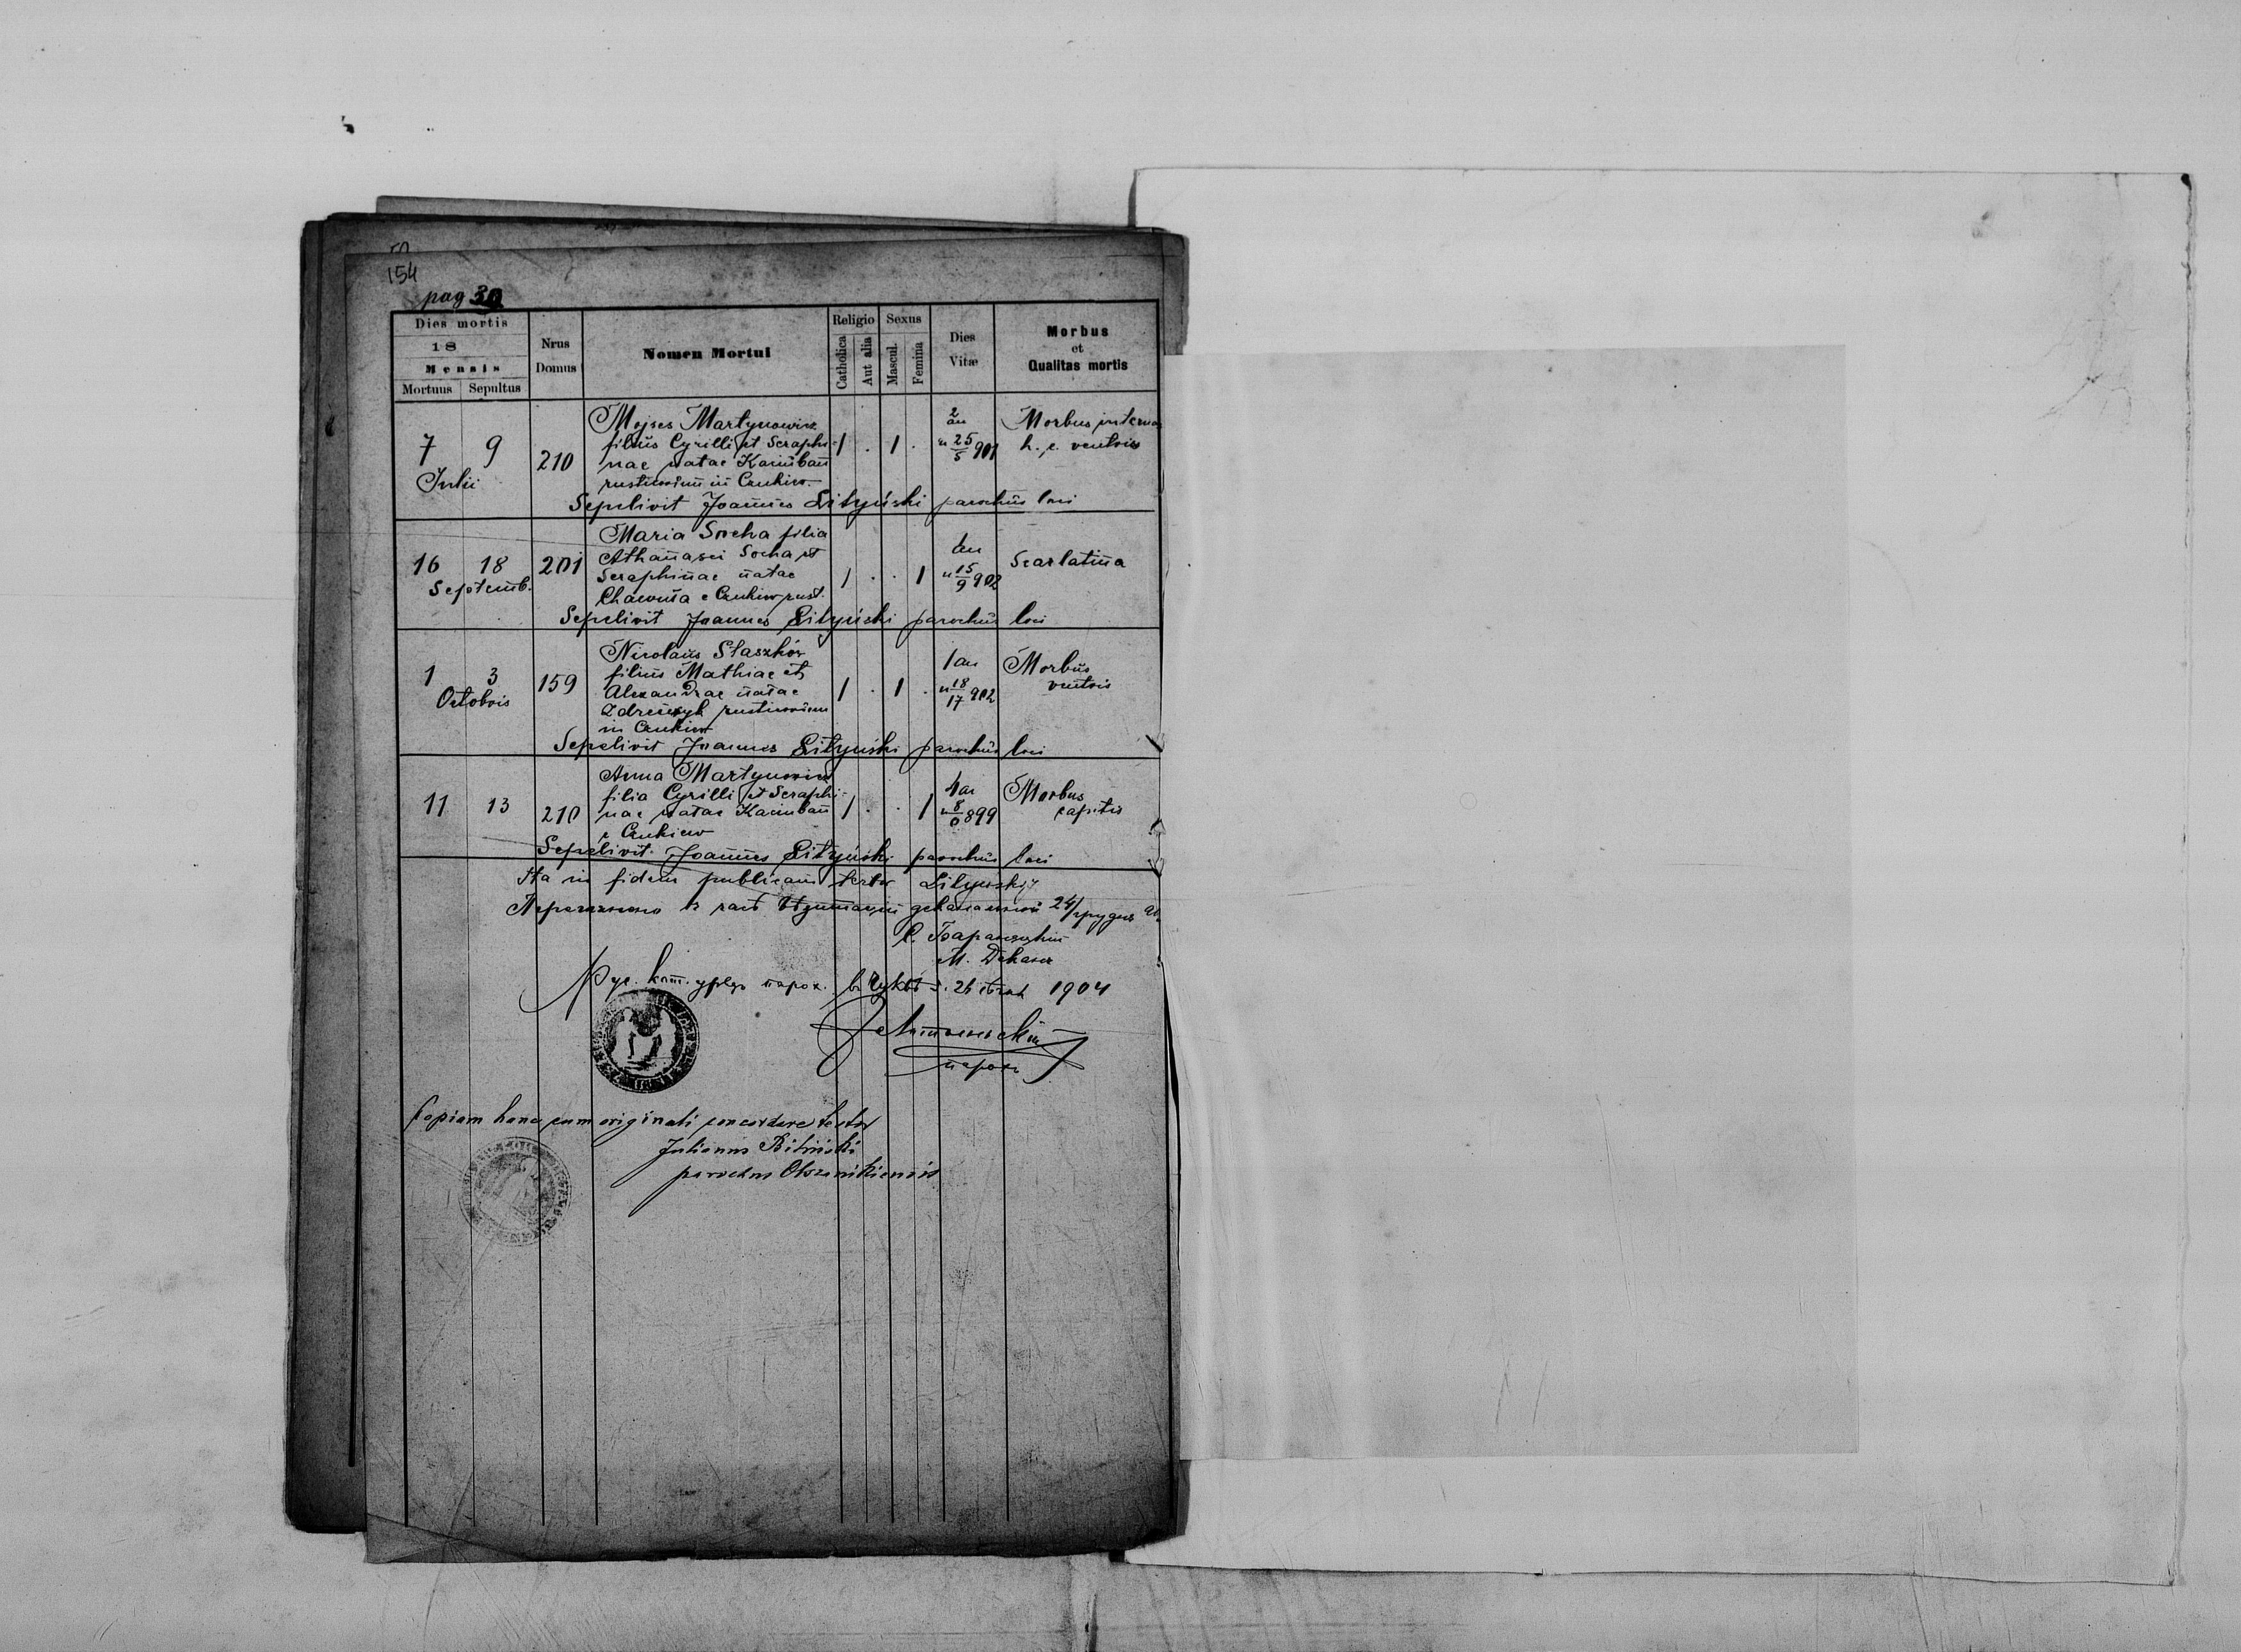 154
pag 30
Dies mortis
18
Mensis
Mortuus Sepultus
Nrus
Domus
Nomen Mortui
Religio
Catholica
Aut alia
Sexus
Mascul.
Femina
Dies
Vitæ
Morbus
et
Qualitas mortis
7 9
Julii
210
Mojses Martynowicz
filius Cyrilli et Seraphi-
nae natae Kaciuban
rusticorum in Cankiew.
1 . 1 .
2
an
n 25/5 901
Morbus internus
h. e. ventris
Sepelivit Joannes Lityński parochus loci
16 18
Septemb.
201
Maria Socha filia
Athanasii Socha et
Seraphinae natae
e Cankiew rust.
1 . . 1
1 an
n 15/9 902
Scarlatina
Sepelivit Joannes Lityński parochus loci
1 3
Octobris
159
Nicolaus Staszków
filius Mathiae et
Alexandrae natae
rusticorum
in Cankiew
1 . 1 .
1 an
n 18/17 902
Morbus
ventris
Sepelivit Joannes Lityński parochus loci
11 13
210
Anna Martynowicz
filia Cyrilli et Seraphi-
nae natae Kaciuban
e Cankiew
1 . . 1
4 an
n 8/ 899
Morbus
capitis
Sepelivit Joannes Lityński parochus loci
Ita in fidem publicam testor Lityński
24/грудня
М. Декана
Рус. кат. уряд парох. 1904
парох
Copiam hanc cum originali concordare testor
Julianus Biliński
parochus Olszanikiensis